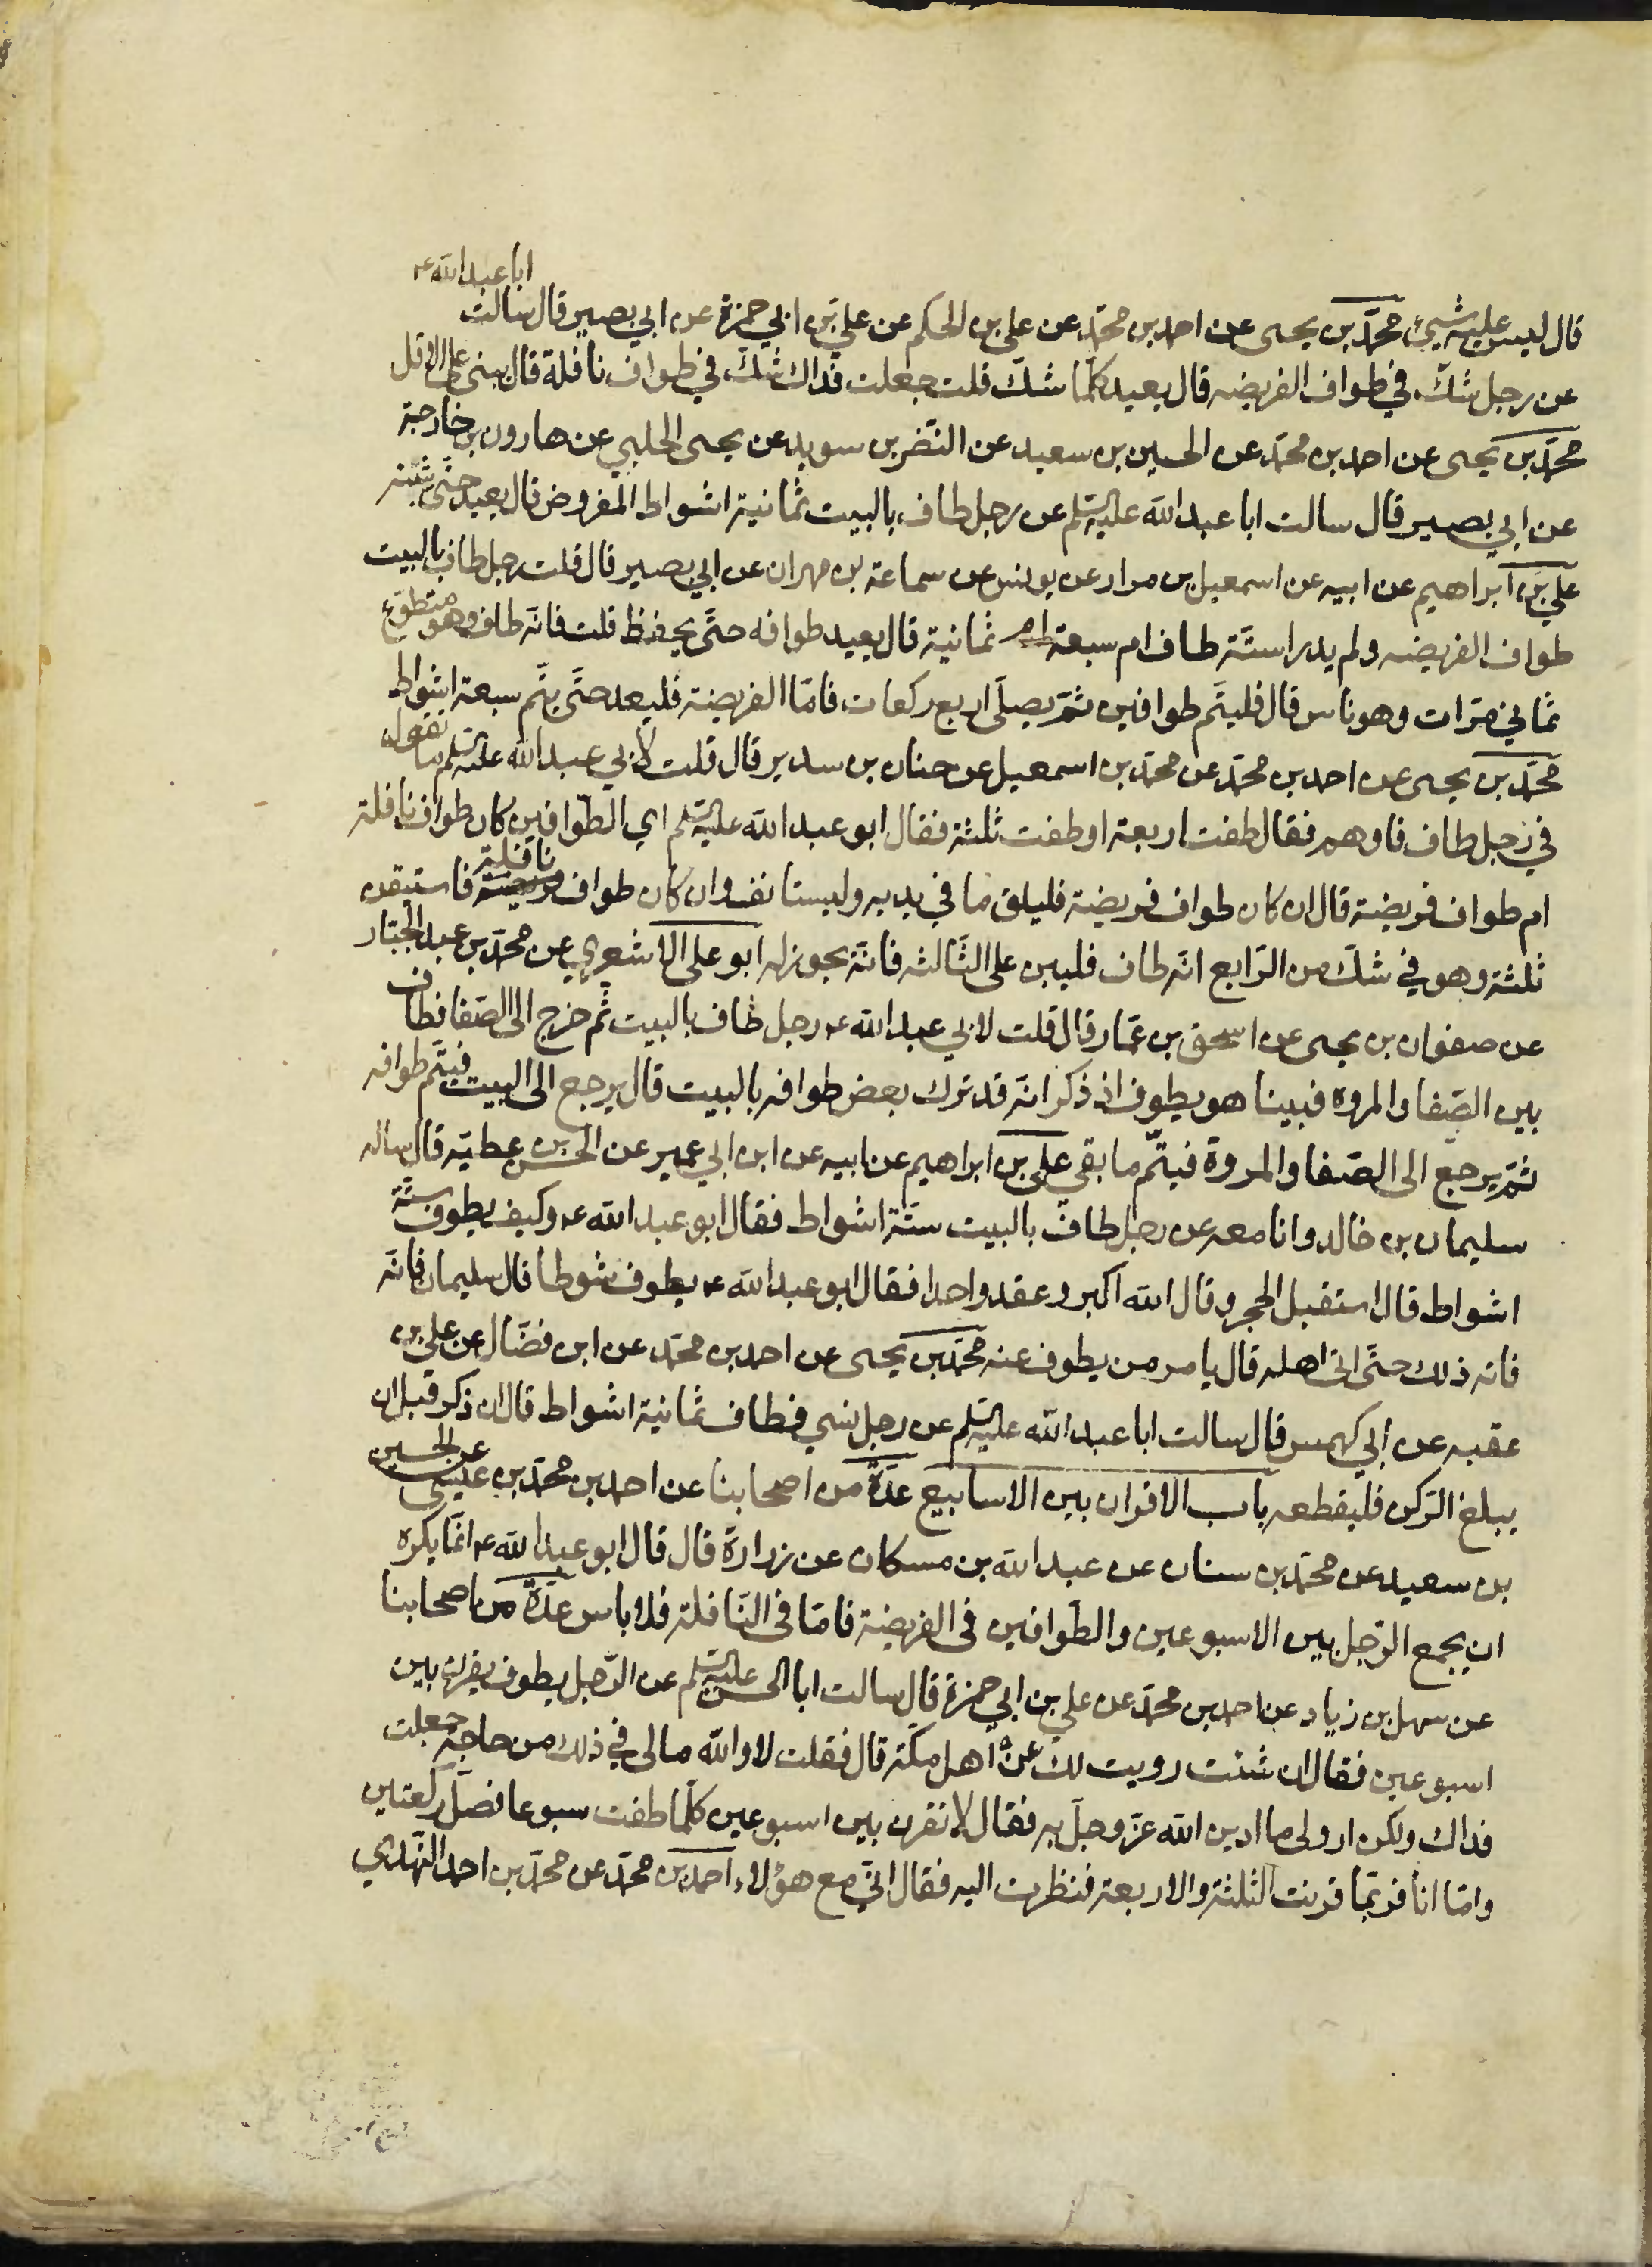 ابا عبدالله ع
قال ليس عليه شيئ محمّد بن يحيى عن احمد بن محمّد عن علي بن الحكم عن علي بن ابي حمزة عن ابي بصير قال سالت
عن رجل شكّ في طواف الفريضه قال يعيد كلّما شكّ قلت جعلت فداك شكّ في طواف نافلة قال يبنى على الاقل
محمّد بن يحيى عن احمد بن محمّد عن الحسين بن سعيد عن النّضر بن سويد عن يحيى الحلبي عن هارون بن خارجة
عن ابي بصير قال سالت ابا عبدالله عليه السلم عن رجل طاف بالبيت ثمانية اشواط المفروض قال يعيد حتّى يثبته
علي بن ابراهيم عن ابيه عن اسمعيل بن مرار عن يونس عن سماعة بن مهران عن ابي بصير قال قلت رجل طاف بالبيت
طواف الفريضه ولم يدر استّة طاف ام سبعة ام ثمانية قال يعيد طوافه حتّى يحفظ قلت فانّه طاف وهو متطوّع
ثماني مرّات وهو ناس قال فليتم طوافين ثمّ يصلّى اربع ركعات فامّا الفريضة فليعد حتّى يتّم سبعة اشواط
محمّد بن يحيى عن احمد بن محمّد عن محمّد بن اسمعيل عن حنان بن سدير قال قلت لابي عبدالله عليه السلم ما تقول
في رجل طاف فاوهم فقال طفت اربعة او طفت ثلثة فقال ابو عبدالله عليه السلم اي الطّوافين كان طواف نافلة
ام طواف فريضة قال ان كان طواف فريضة فليلق ما في يديه وليستانف وان كان طواف فريضة نافلة فاستيقن
ثلثة وهو في شكّ من الرّابع انّه طاف فليبن على الثّالثه فانّه يجوز له ابو على الاشعري عن محمّد بن عبد الجبّار
عن صفوان بن يحيى عن اسحق بن عمّار قال قلت لابي عبدالله ع رجل طاف بالبيت ثم خرج الى الصّفا فطاف
بين الصّفا والمروه فبينا هو يطوف اذ ذكر انّه قد ترك بعض طوافه بالبيت قال يرجع الى البيت فيتّم طوافه
ثمّ يرجع الى الصّفا والمروة فيتّم ما بقي علي بن ابراهيم عن ابيه عن ابن ابي عمير عن الحسن بن عطيّه قال ساله
سليمان بن خالد وانا معه عن رجل طاف بالبيت ستّة اشواط فقال ابو عبدالله ع وكيف يطوف ستّة
اشواط قال استقبل الحجر وقال الله اكبر وعقد واحدا فقال ابو عبدالله ع يطوف شوطا قال سليمان فانّه
فاته ذلك حتّى اتى اهله قال يامر من يطوف عنه محمّد بن يحيى عن احمد بن محمّد عن ابن فضّال عن علي بن
عقبه عن ابي كهمس قال سالت ابا عبدالله عليه السلم عن رجل نسي فطاف ثمانية اشواط قال ان ذكر قبل ان
يبلغ الرّكن فليقطعه باب الاقران بين الاسابيع عدّة من اصحابنا عن احمد بن محمّد بن عيسى عن الحسين
بن سعيد عن محمّد بن سنان عن عبدالله بن مسكان عن زرارة قال قال ابو عبدالله ع انّما يكره
ان يجمع الرّجل بين الاسبوعين والطّوافين فى الفريضة فامّا فى النّافلة فلا باس عدّة من اصحابنا
عن سهل بن زياد عن احمد بن محمّد عن علي بن ابي حمزة قال سالت ابا الحسن عليه السلم عن الرّجل يطوف يقرن بين
اسبوعين فقال ان شئت رويت لك عن اهل مكّة قال فقلت لا والله مالي في ذلك من حاجة جعلت
فداك ولكن ارو لى ما ادين الله عزّ وجلّ به فقال لا تقرن بين اسبوعين كلّما طفت سبوعا فصلّ ركعتين
وامّا انا فربّما قرنت الثلثة والاربعة فنظرت اليه فقال انّي مع هؤلاء احمد بن محمّد عن محمّد بن احمد النّهدي